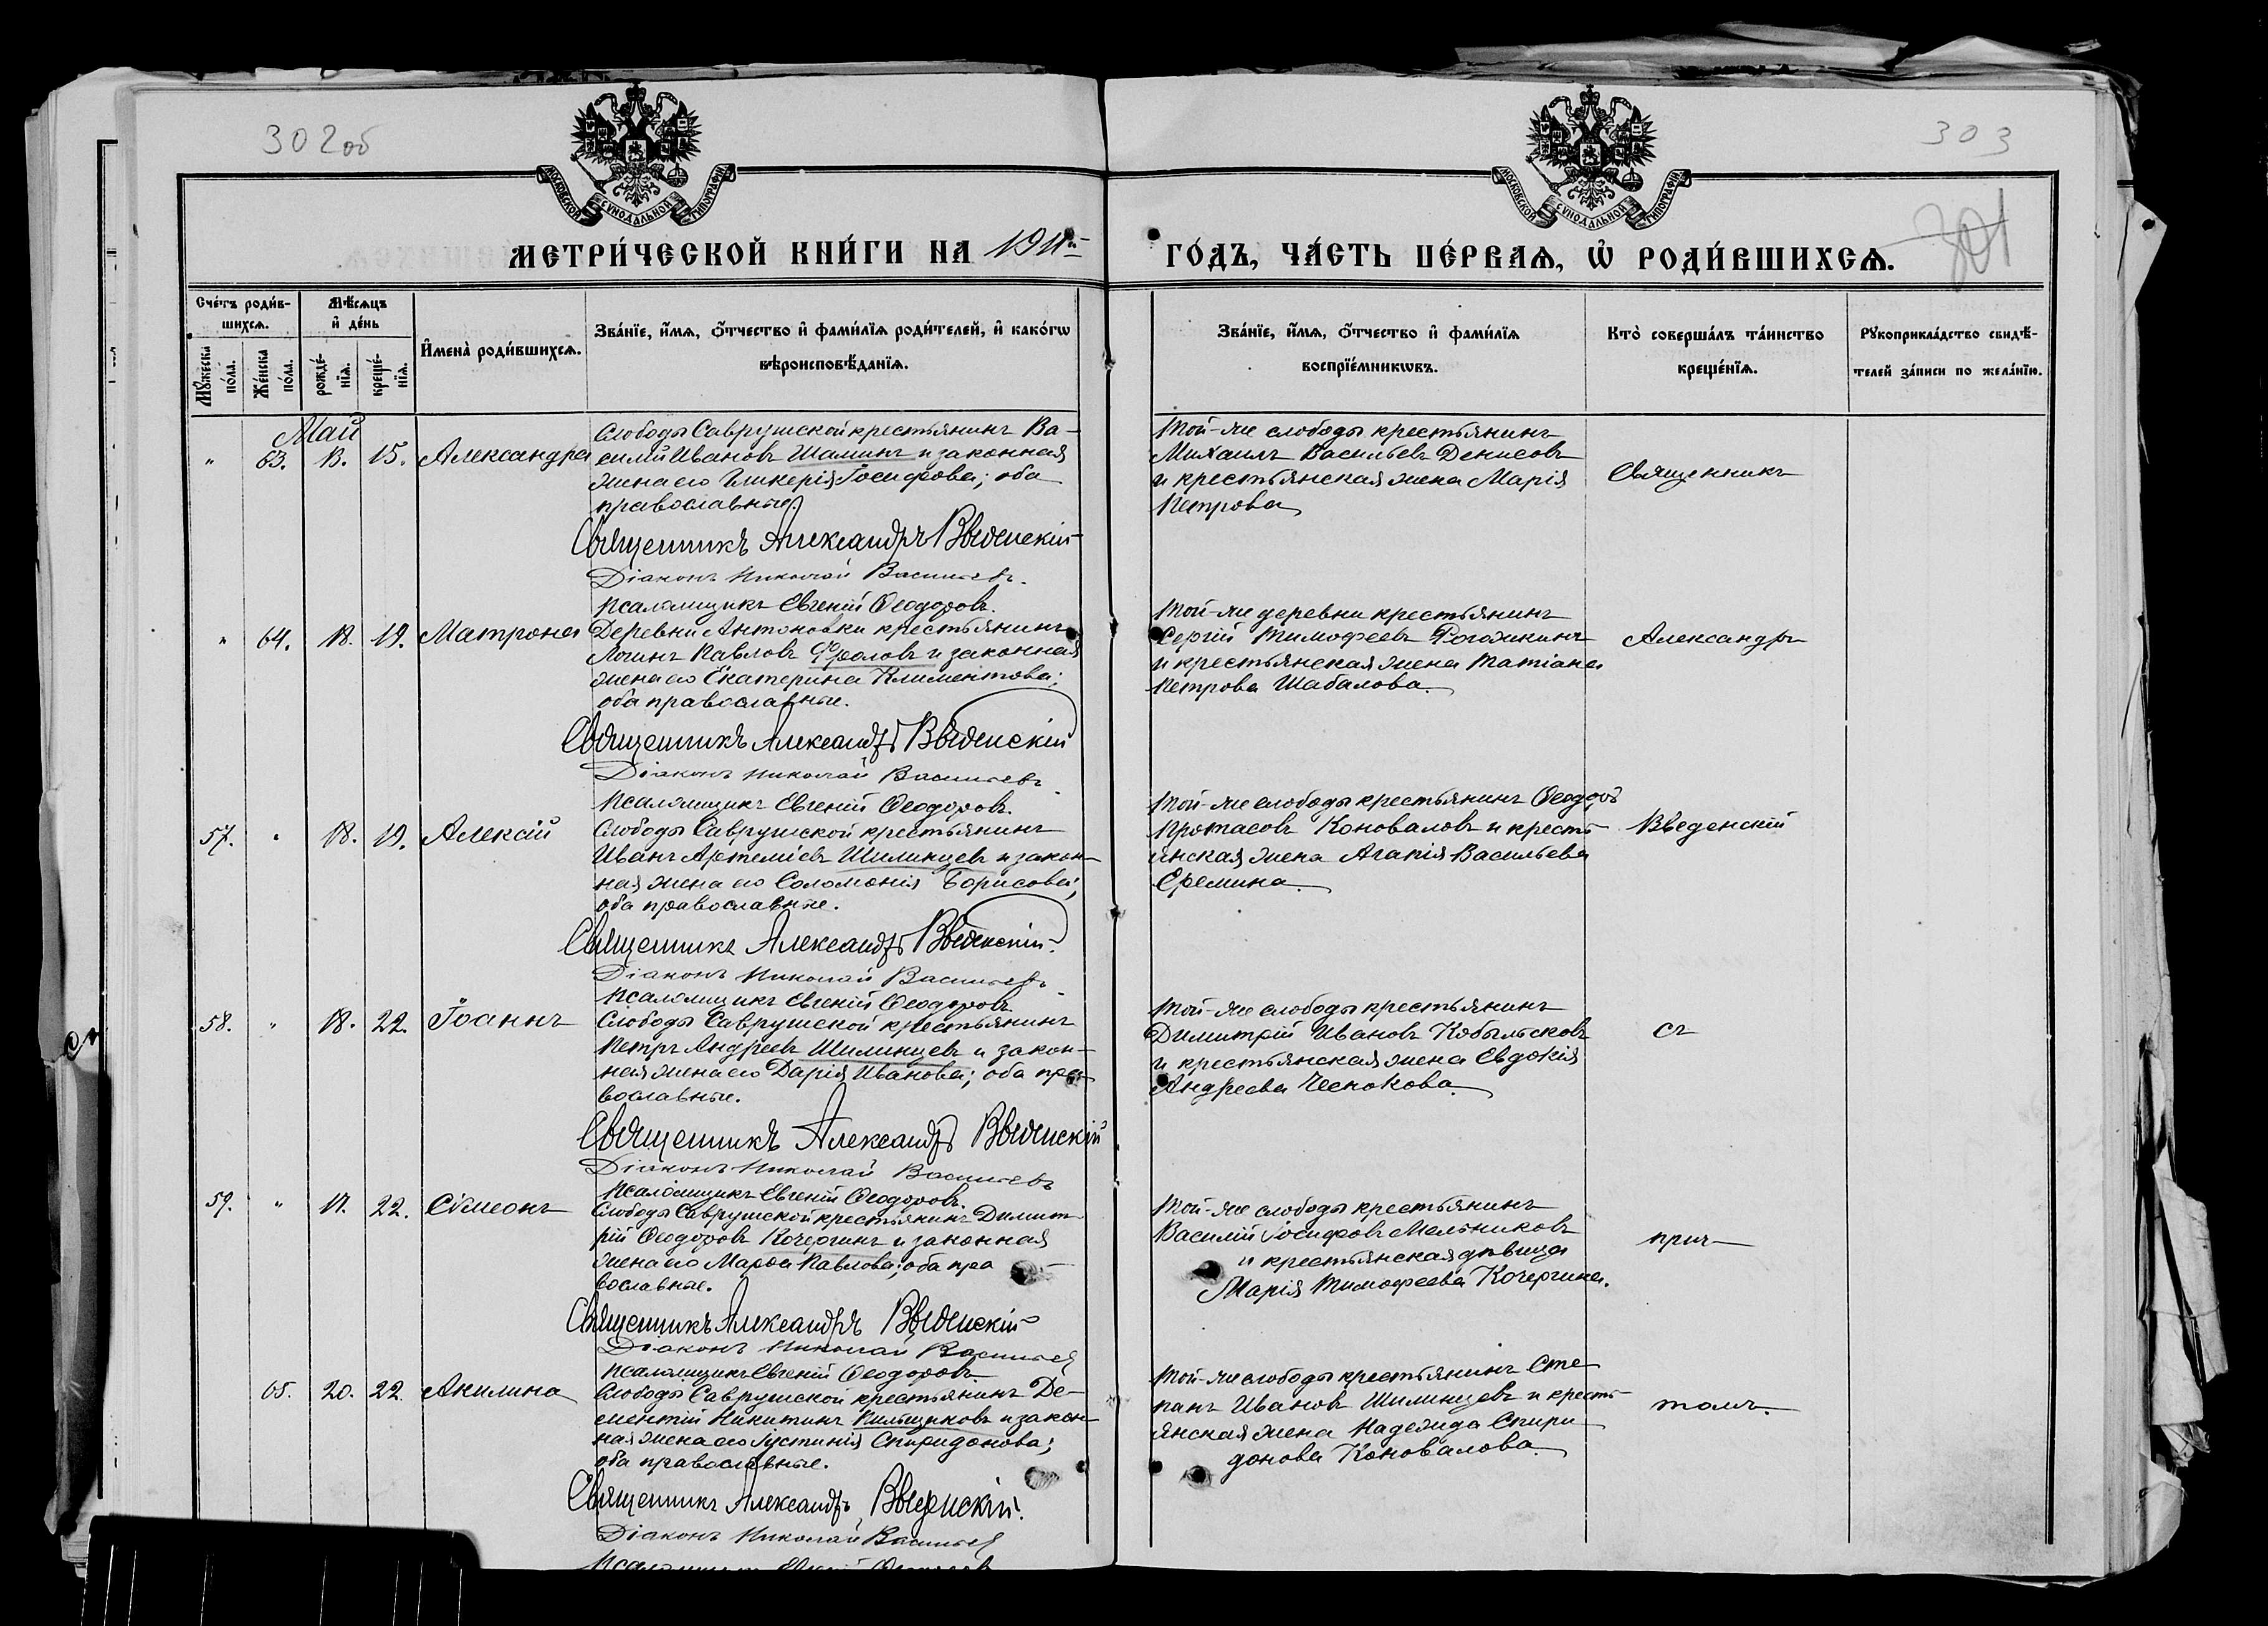 302об
303
301
МОСКОВСКОЙ СѴНОДАЛЬНОЙ ТИПОГРАФІИ
МОСКОВСКОЙ СѴНОДАЛЬНОЙ ТИПОГРАФІИ
МЕТРИ́ЧЕСКОЙ КНИ́ГИ НА 1911й
ГО́ДЪ, ЧА́СТЬ ПЕ́РВАѦ, Ѡ҆ РОДИ́ВШИХСѦ.
Сче́тъ роди́в-
шихсѧ.
Мꙋ́жеска
по́ла.
Же́нска
по́ла.
Мѣ́сѧцъ
и҆ де́нь
рожде́-
нїѧ.
креще́-
нїѧ.
И҆мена̀ роди́вшихсѧ.
Зва́нїе, и҆́мѧ, ѻ҆́тчество и҆ фами́лїѧ роди́телей, и҆ како́гѡ
вѣроисповѣ́данїѧ.
Зва́нїе, и҆́мѧ, ѻ҆́тчество и҆ фами́лїѧ
воспрїе́мникѡвъ.
Кто̀ соверша́лъ та́инство
креще́нїѧ.
Рꙋкоприкла́дство свидѣ́-
телей за́писи по жела́нїю.
Май
" 63. 13. 15. Александра
Слободы Саврушской крестьянинъ Ва-
силій Ивановъ Шаминъ и законная
жена его Гликерія Іосифова; оба
православные.
Священникъ Александръ Введенскій
Діаконъ Николай Васильевъ.
Псаломщикъ Евгеній Ѳеодоровъ.
Той-же слободы крестьянинъ
Михаилъ Васильевъ Денисовъ
и крестьянская жена Марія
Петрова
Священникъ
" 64. 18. 19. Матрона
Деревни Антоновки крестьянинъ
Логинъ Павловъ Фроловъ и законная
жена его Екатерина Климентова;
оба православные.
Священникъ Александръ Введенскій
Діаконъ Николай Васильевъ
Псаломщикъ Евгеній Ѳеодоровъ.
Той-же деревни крестьянинъ
Сергій Тимофеевъ Рогожкинъ
и крестьянская жена Татіана
Петрова Шабалова.
Александръ
57. " 18. 19. Алексій
Слободы Саврушской крестьянинъ
Иванъ Артеміевъ Шилинцевъ и закон-
ная жена его Соломонія Борисова;
оба православные.
Священникъ Александръ Введенскій.
Діаконъ Николай Васильевъ
Псаломщикъ Евгеній Ѳеодоровъ
Той-же слободы крестьянинъ Ѳеодоръ
Протасовъ Коноваловъ и кресть-
янская жена Агапія Васильева
Еремина.
Введенскій
58. " 18. 22. Іоаннъ
Слободы Саврушской крестьянинъ
Петръ Андреевъ Шилинцевъ и закон-
ная жена его Дарія Иванова; оба пра-
вославные.
Священникъ Александръ Введенскій
Діаконъ Николай Васильевъ
Псаломщикъ Евгеній Ѳеодоровъ.
Той-же слободы крестьянинъ
Димитрій Ивановъ Кобыльсковъ
и крестьянская жена Евдокія
Андреева Чеснокова.
съ
59. " 17. 22. Сѵмеонъ
Слободы Саврушской крестьянинъ Димит-
рій Ѳеодоровъ Кочергинъ и законная
жена его Марѳа Павлова; оба пра
вославные.
Священникъ Александръ Введенскій
Діаконъ Николай Васильев
Псаломщикъ Евгеній Ѳеодоровъ
Той-же слободы крестьянинъ
Василій Іосифовъ Мельниковъ
и крестьянская дѣвица
Марія Тимофеева Кочергина.
прич-
65. 20. 22. Акилина
Слободы Саврушской крестьянинъ Де-
ментій Никитинъ Пильщиковъ и закон-
ная жена его Іустинія Спиридонова;
оба православные.
Священникъ Александръ Введенскій.
Діаконъ Николай Васильев
Псаломщикъ Евгеній Ѳеодоровъ
Той-же слободы крестьянинъ Сте-
панъ Ивановъ Шилинцевъ и кресть-
янская жена Надежда Спири-
донова Коновалова.
томъ.